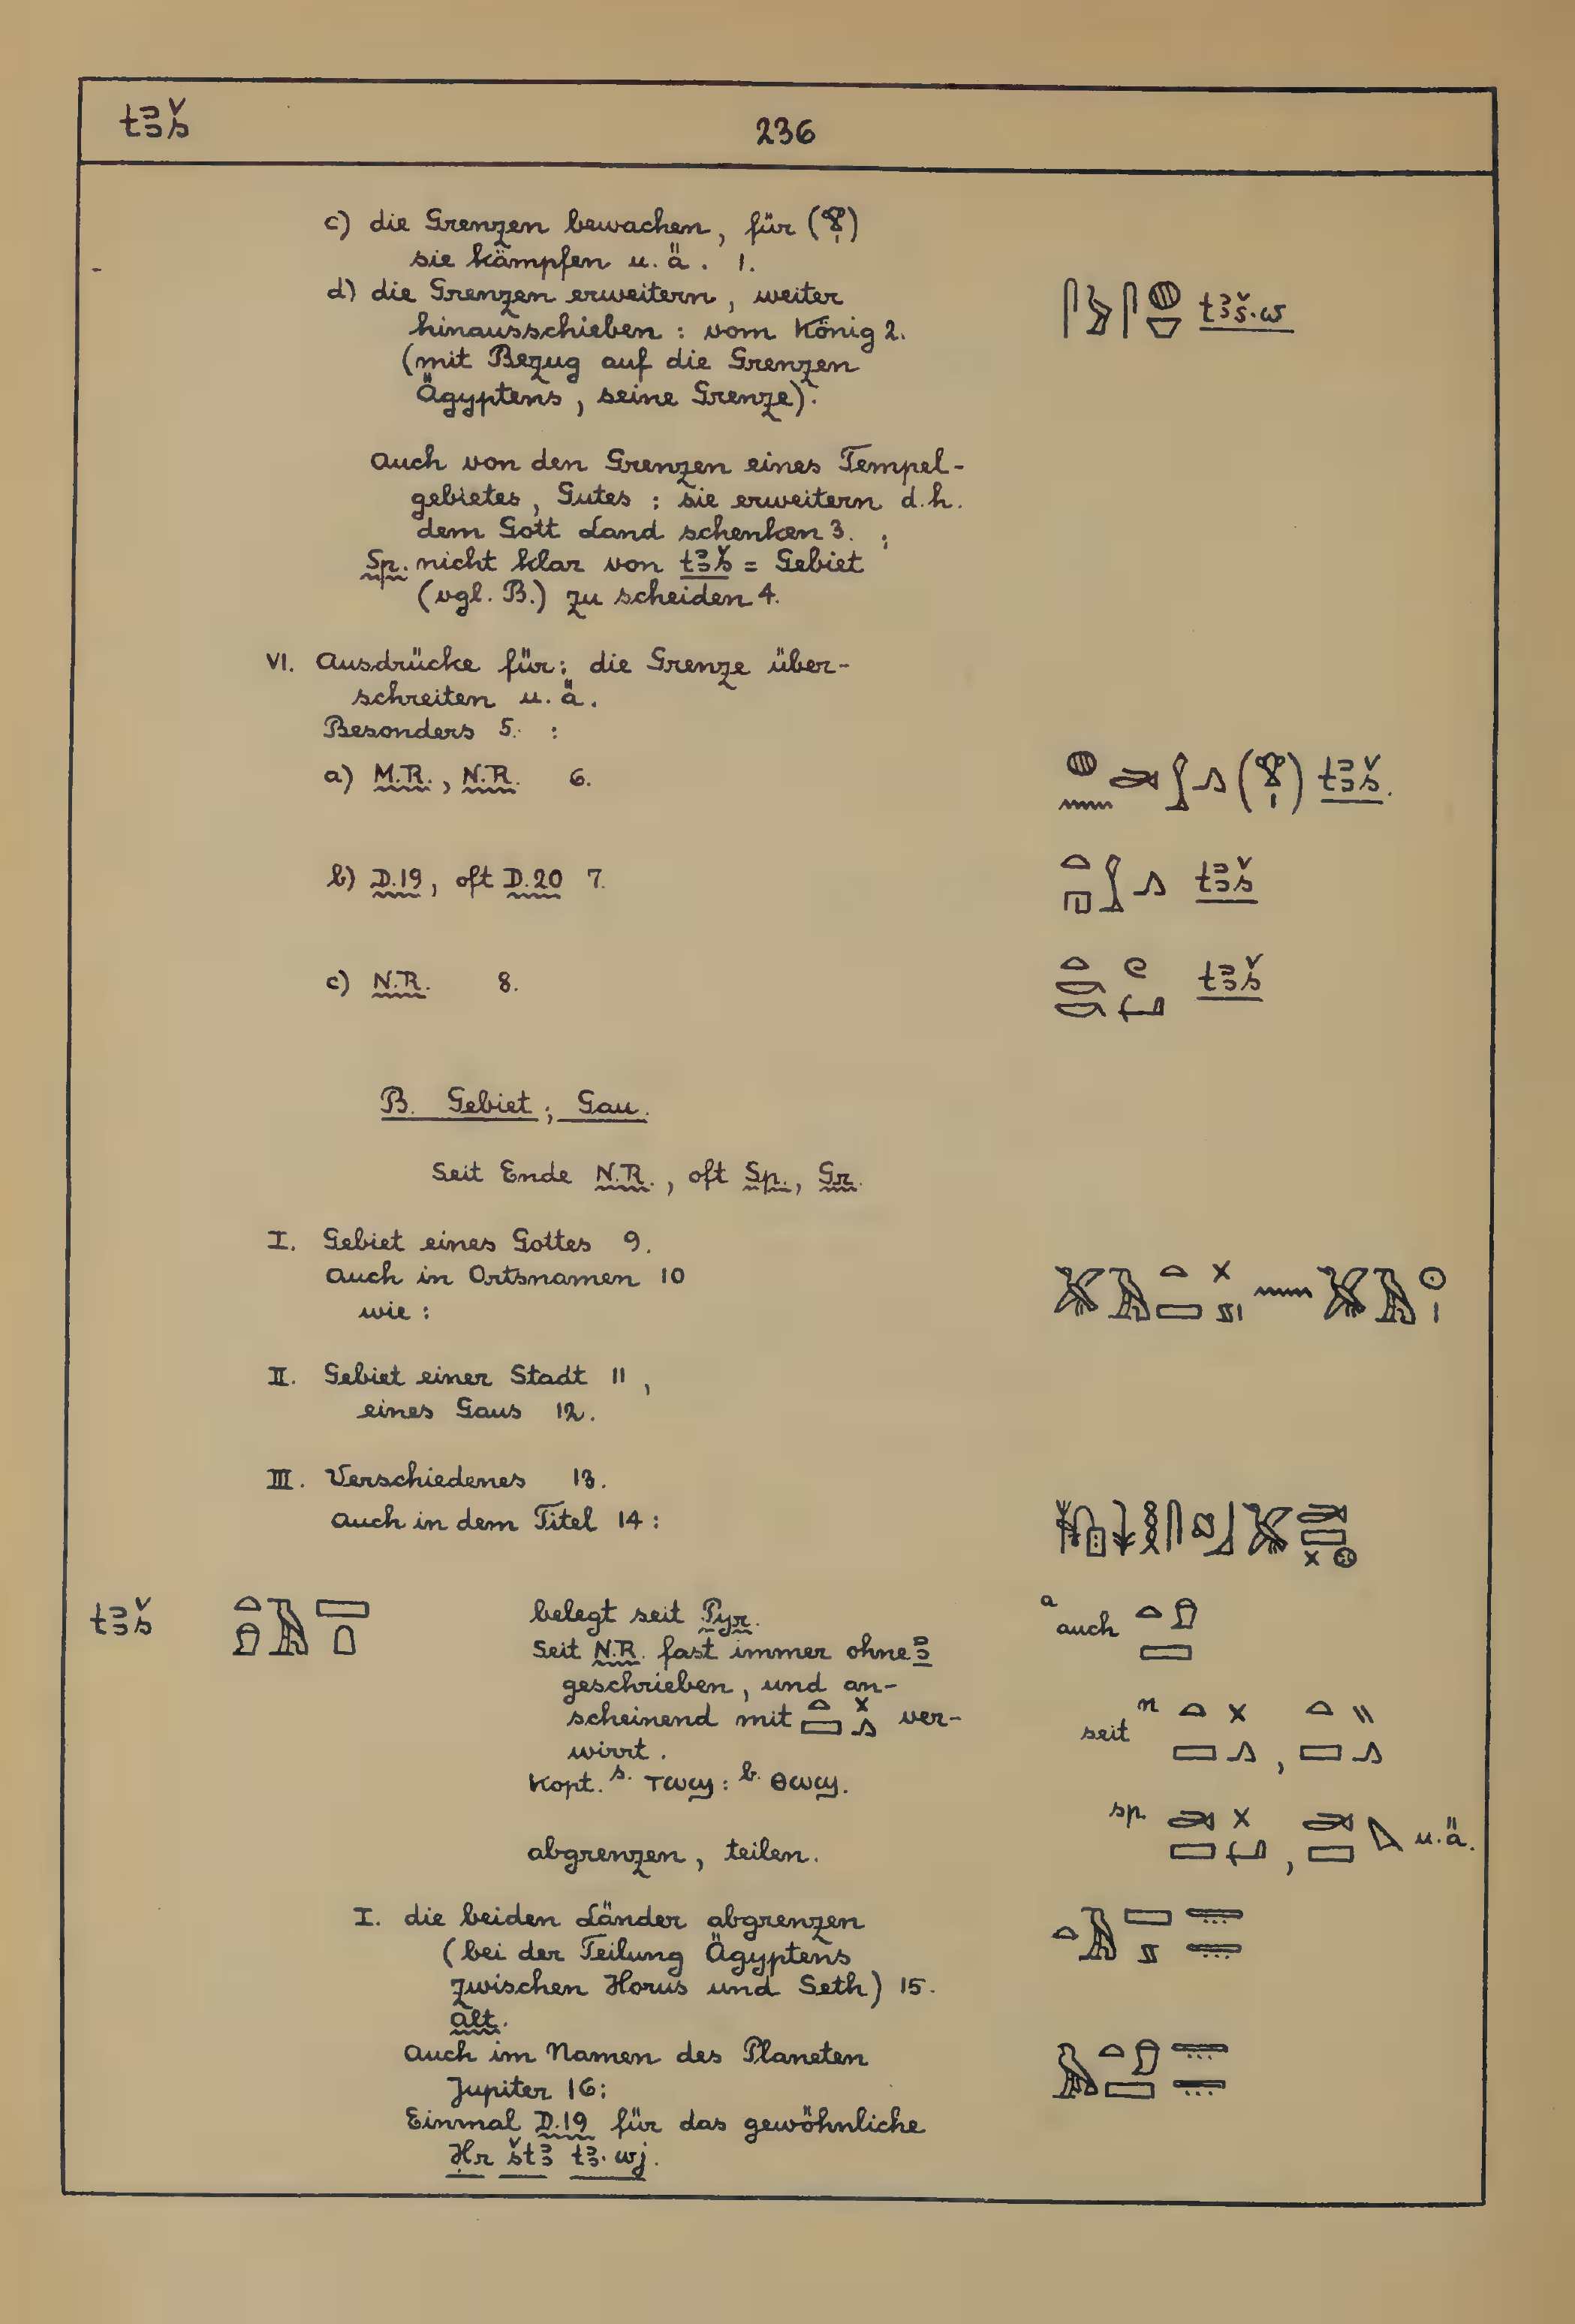 tꜣš
236
c) die Grenzen bewachen, für (𓁷𓏤)
sie kämpfen u.ä. 1.
d) die Grenzen erweitern, weiter
hinausschieben: vom König 2. tꜣš.w
(mit Bezug auf die Grenzen
Ägyptens, seine Grenze).
Auch von den Grenzen eines Tempel-
gebietes, Gutes: sie erweitern d.h.
dem Gott Land schenken 3. ;
Sp. nicht klar von tꜣš = Gebiet
(vgl. B.) zu scheiden 4.
VI. Ausdrücke für: die Grenze über-
schreiten u.ä.
Besonders 5. :
a) M.R., N.R. 6. (𓁷𓏤) tꜣš.
b) D.19, oft D.20 7. tꜣš
c) N.R. 8. tꜣš
B. Gebiet; Gau.
Seit Ende N.R., oft Sp., Gr.
I. Gebiet eines Gottes 9.
Auch in Ortsnamen 10
wie:
II. Gebiet einer Stadt 11,
eines Gaus 12.
III. Verschiedenes 13.
Auch in dem Titel 14:
tꜣš belegt seit Pyr. a auch
Seit N.R. fast immer ohne ꜣ
geschrieben, und an-
scheinend mit 𓏏𓈙𓏴𓂻 ver- seit n
wirrt.
Kopt. s. ⲧⲱϣ: b. ⲑⲱϣ.
sp. u.ä.
abgrenzen, teilen.
I. die beiden Länder abgrenzen
(bei der Teilung Ägyptens
zwischen Horus und Seth) 15.
alt.
Auch im Namen des Planeten
Jupiter 16:
Einmal D.19 für das gewöhnliche
Ḥr štꜣ tꜣ.wj.